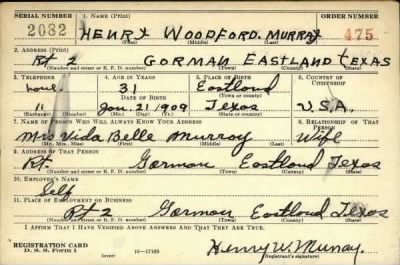 SERIAL NUMBER 1. NAME (Print) ORDER NUMBER
2082 HENRY WOODFORD. MURRAY 475
(First) (Middle) (Last)
2. ADDRESS (Print)
Rt 2 GORMAN EASTLAND TEXAS
(Number and street or R. F. D. number) (Town) (County) (State)
3. TELEPHONE 4. AGE IN YEARS 5. PLACE OF BIRTH 6. COUNTRY OF CITIZENSHIP
none 31 Eastland
DATE OF BIRTH (Town or county)
11 Jan. 21 1909 Texas U.S.A.
(Exchange) (Number) (Mo.) (Day) (Yr.) (State or country)
7. NAME OF PERSON WHO WILL ALWAYS KNOW YOUR ADDRESS 8. RELATIONSHIP OF THAT PERSON
Mrs Vida Belle Murray Wife
(Mr., Mrs., Miss) (First) (Middle) (Last)
9. ADDRESS OF THAT PERSON
Rt. Gorman Eastland Texas
(Number and street or R. F. D. number) (Town) (County) (State)
10. EMPLOYER'S NAME
Self
11. PLACE OF EMPLOYMENT OR BUSINESS
Rt 2 Gorman Eastland Texas
(Number and street or R. F. D. number) (Town) (County) (State)
I AFFIRM THAT I HAVE VERIFIED ABOVE ANSWERS AND THAT THEY ARE TRUE.
REGISTRATION CARD
D. S. S. Form 1 (over) 16—17105 Henry W. Murray.
Registrant's signature